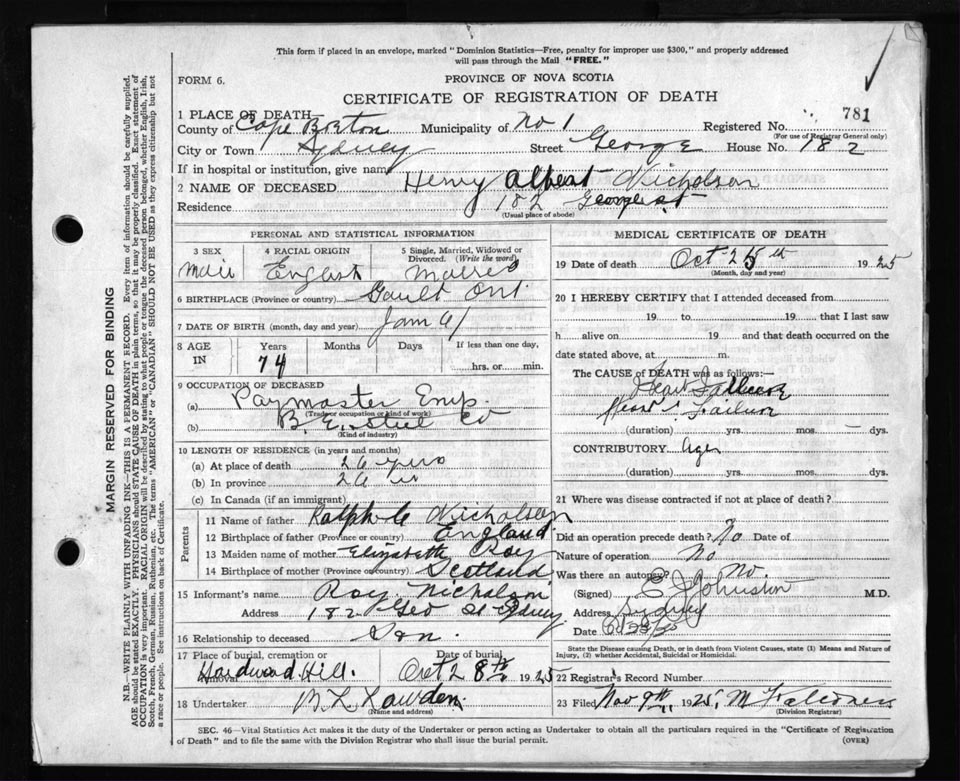 This form if placed in an envelope, marked "Dominion Statistics—Free, penalty for improper use $300," and properly addressed
will pass through the Mail "FREE."
FORM 6.
PROVINCE OF NOVA SCOTIA
CERTIFICATE OF REGISTRATION OF DEATH
781
1 PLACE OF DEATH
County of Cape Breton Municipality of No 1 Registered No.
(For use of Registrar General only)
City or Town Sydney Street George House No. 182
If in hospital or institution, give name
2 NAME OF DECEASED Henry Albert Nicholson
Residence 182 George st
(Usual place of abode)
PERSONAL AND STATISTICAL INFORMATION
3 SEX 4 RACIAL ORIGIN 5 Single, Married, Widowed or
Divorced. (Write the word)
Male English
6 BIRTHPLACE (Province or country) Gault Ont
7 DATE OF BIRTH (month, day and year)
8 AGE IN Years Months Days If less than one day,
74 hrs. or min.
9 OCCUPATION OF DECEASED
(a) Paymaster Emp.
(Trade or occupation or kind of work)
(b) B. E. Steel Co
(Kind of industry)
10 LENGTH OF RESIDENCE (in years and months)
(a) At place of death 26 yrs
(b) In province 26
(c) In Canada (if an immigrant)
Parents
11 Name of father Ralph Nicholson
12 Birthplace of father (Province or country) England
13 Maiden name of mother Elizabeth Roy
14 Birthplace of mother (Province or country) Scotland
15 Informant's name Roy Nicholson
Address 182 Geo St Sydney
16 Relationship to deceased Son.
17 Place of burial, cremation or removal Date of burial
Hardwood Hill. Oct 28th 1925
18 Undertaker
(Name and address)
MEDICAL CERTIFICATE OF DEATH
19 Date of death Oct 25th 1925
(Month, day and year)
20 I HEREBY CERTIFY that I attended deceased from
19 to 19 that I last saw
h alive on 19 and that death occurred on the
date stated above, at m.
The CAUSE OF DEATH was as follows:—
Heart Failure
(duration) yrs. mos. dys.
CONTRIBUTORY Age
(duration) yrs. mos. dys.
21 Where was disease contracted if not at place of death?
Did an operation precede death? No Date of
Nature of operation No
Was there an autopsy? No
(Signed) Johnston M.D.
Address Sydney
Date
State the Disease causing Death, or in death from Violent Causes, state (1) Means and Nature of
Injury, (2) whether Accidental, Suicidal or Homicidal.
22 Registrar's Record Number
23 Filed Nov 9th, 1925,
(Division Registrar)
SEC. 46—Vital Statistics Act makes it the duty of the Undertaker or person acting as Undertaker to obtain all the particulars required in the "Certificate of Registration
of Death" and to file the same with the Division Registrar who shall issue the burial permit. (OVER)
MARGIN RESERVED FOR BINDING
N.B.—WRITE PLAINLY WITH UNFADING INK—THIS IS A PERMANENT RECORD. Every item of information should be carefully supplied.
AGE should be stated EXACTLY. PHYSICIANS should STATE CAUSE OF DEATH in plain terms, so that it may be properly classified. Exact statement of
OCCUPATION is very important. RACIAL ORIGIN will be described by stating to what people or tongue the deceased person belonged, whether English, Irish,
Scotch, French, German, Russian, Ruthenian, etc. The terms "AMERICAN" or "CANADIAN" SHOULD NOT BE USED as they express citizenship but not
a race or people. See instructions on back of Certificate.